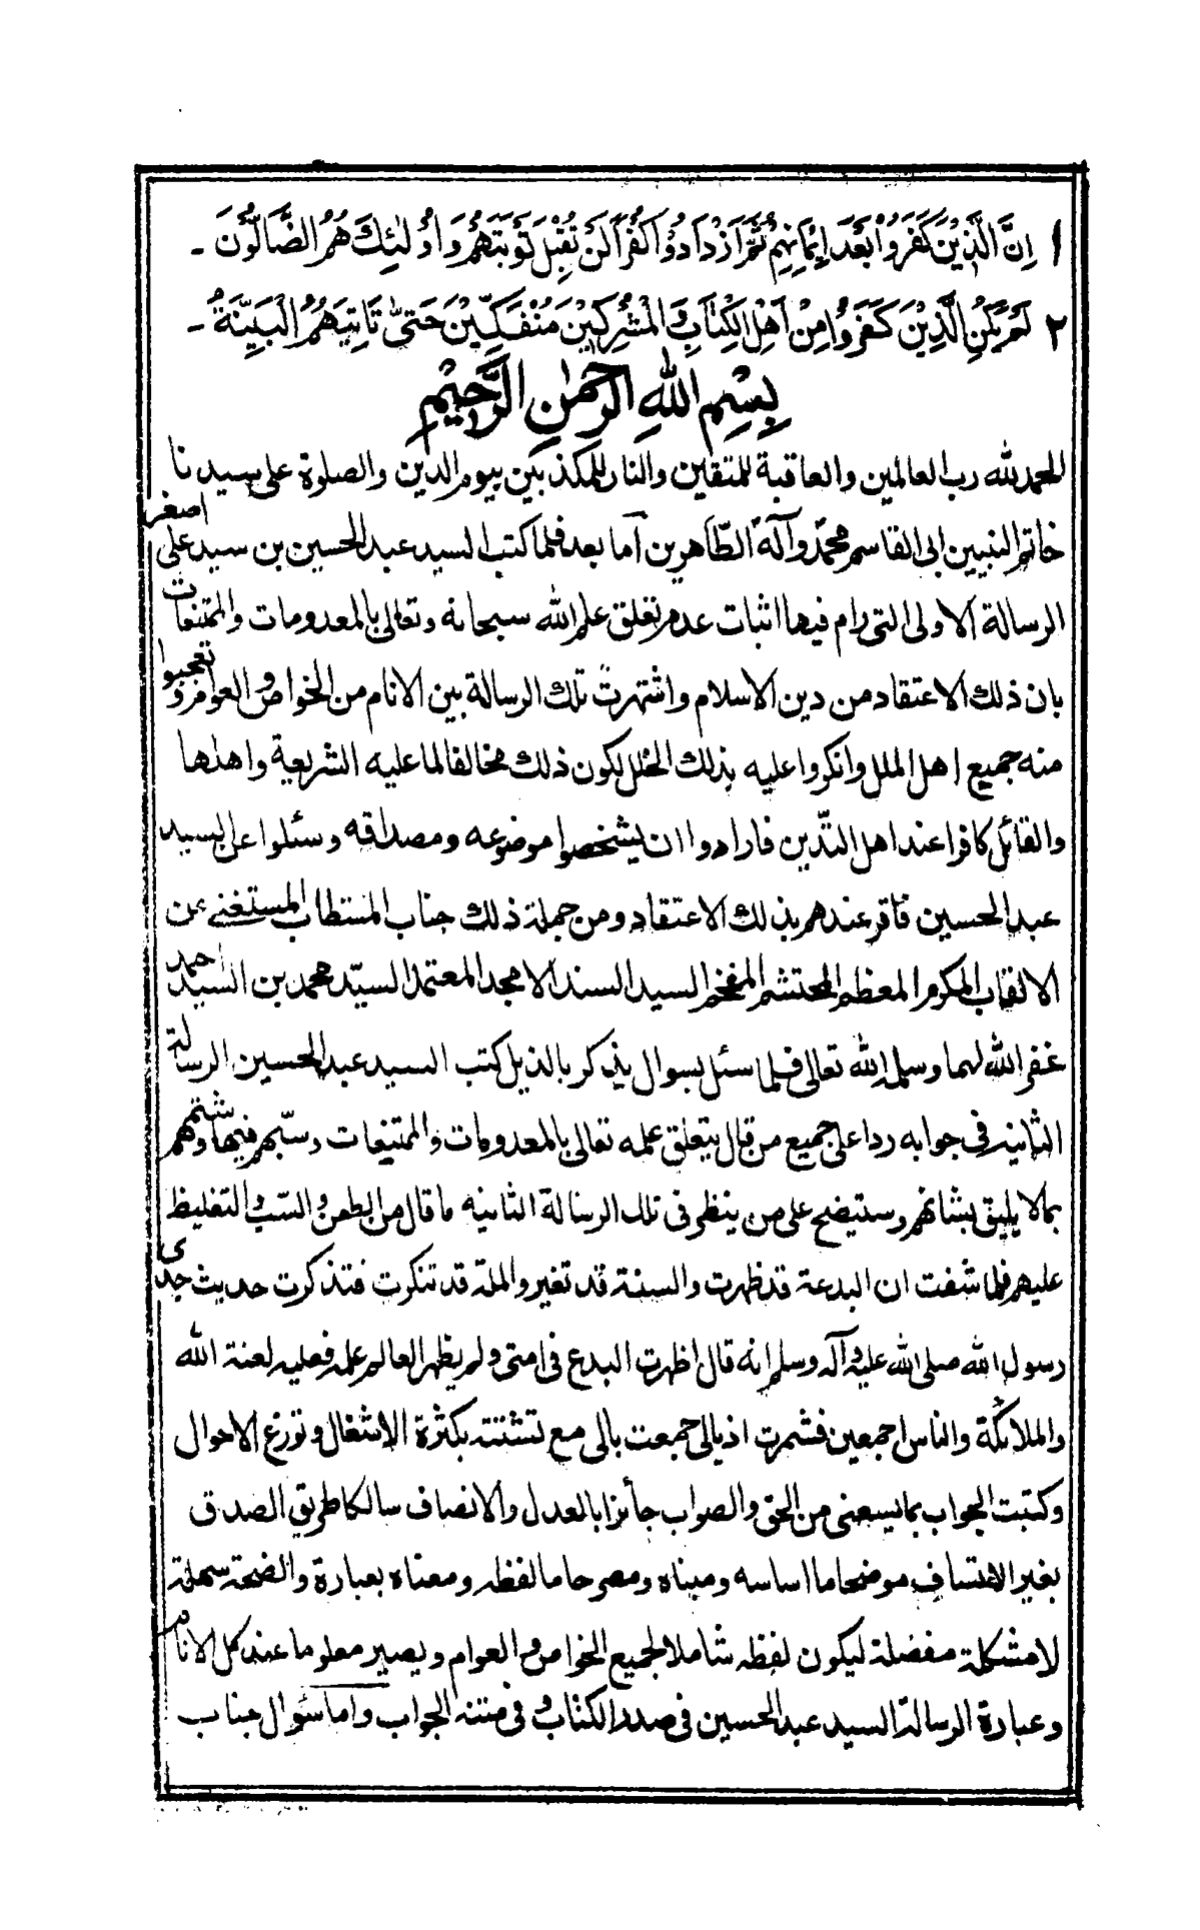 ١ اِنَّ الَّذِيْنَ كَفَرُوْا بَعْدَ اِيْمَانِهِمْ ثُمَّ ازْدَادُوْا كُفْرًا لَنْ تُقْبَلَ تَوْبَتُهُمْ وَاُولٰئِكَ هُمُ الضَّالُّوْنَ -
٢ لَمْ يَكُنِ الَّذِيْنَ كَفَرُوْا مِنْ اَهْلِ الْكِتَابِ وَ الْمُشْرِكِيْنَ مُنْفَكِّيْنَ حَتّٰى تَاْتِيَهُمُ الْبَيِّنَةُ -
بِسْمِ اللهِ الرَّحْمٰنِ الرَّحِيْمِ
الحمد لله رب العالمين والعاقبة للمتقين والنار للمكذبين بيوم الدين والصلوة على سيدنا
خاتم النبيين ابى القاسم محمّد وآله الطّاهرين آما بعد فلما كتب السيد عبد الحسين بن سيد على اصغر
الرسالة الاولى التى رام فيها اثبات عدم تعلق علم الله سبحانه وتعالى بالمعدومات والممتنعات
بان ذلك الاعتقاد من دين الاسلام واشتهرت تلك الرسالة بين الانام من الخواص والعوام وتعجبوا
منه جميع اهل الملل وانكروا عليه بذلك الخلل لكون ذلك مخالفا لما عليه الشريعة واهلها
والقائل كافرا عند اهل التدّين فارادوا ان يشخصوا موضوعه ومصداقه وسئلوا عن السيد
عبد الحسين فاقر عندهم بذلك الاعتقاد ومن جملة ذلك جناب المستطاب المستغنى عن
الالقاب المكرم المعظم المحتشم المفخم السيد السند الامجد المعتمد السيّد محمد بن السيد احمد
غفر الله لهما وسلمه الله تعالى فلما سئل بسوال يذكر بالذيل كتب السيد عبد الحسين الرسالة
الثانيه فى جوابه ردا على جميع من قال بتعلق علمه تعالى بالمعدومات والممتنعات وسبّهم فيها وشتمهم
بمالا يليق بشانهم وستيضح على من ينظر فى تلك الرسالة الثانيه ما قال من الطعن والسّب والتغليظ
عليهم فلما شفت ان البدعة قد ظهرت والسنة قد تغير والملة قد تنكرت فتذكرت حديث جدى
رسول الله صلى الله عليه وآله وسلم انه قال اظهرت البدع فى امتى ولم يظهر العالم علمه فعليه لعنة الله
والملائكة والناس اجمعين فشمرت اذيالى جمعت بالى مع تشتته بكثرة الاشغال وتوزع الاحوال
وكتبت الجواب بما يسعنى من الحق والصواب جائزا بالعدل والانصاف سالكا طريق الصدق
بغير الاعتساف موضحا ما اساسه ومبناه ومصرحا ما لفظه ومعناه بعبارة واضحة سهلة
لا مشكلة مفضلة ليكون لفظه شاملا لجميع الخواص والعوام ويصير معلوما عند كل الانام
وعبارة الرسالة السيد عبد الحسين فى صدر الكتاب و فى متنه الجواب واما سئوال جناب